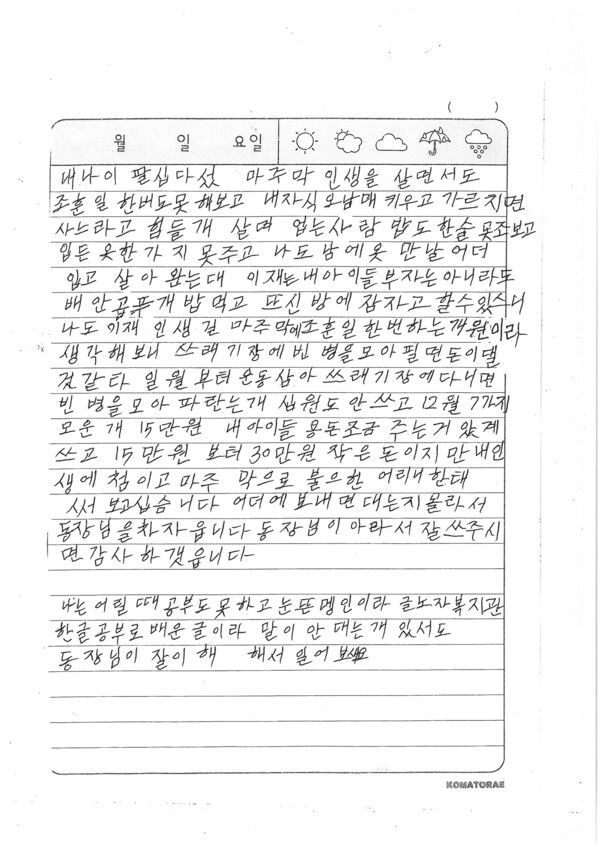 ( )
월 일 요일
내나이 팔십다섰 마주막 인생을 살면서도
조훈일 한버도못해보고 내자식 오남매 키우고 가르지면
사느라고 힘들개 살며 없는사람 밥도 한술 못조보고
입든 옷한가지 못주고 나도 남에옷 만날 어더
입고 살아 왔는대 이재는내아이들부자는아니라도
배안곱푸개 밥먹고 뜨신 방에 잠자고 할수있스니
나도 이재 인생길 마주막에조훈일 한번하는개원이라
생각해보니 쓰래기장에빈 병을모아 필면돈이댈
것같타 일월 부터 운동삼아 쓰래기장에다니면
빈 병을 모아 파란는개 십원도 안쓰고 12월 7가지
모운개 15만원 내아이들 용돈조금 주는거 았계
쓰고 15만원 보터 30만원 작은 돈이지만 내인
생에 첨이고 마주 막으로 불으한 어리내한태
써 보고십슴니다 어더에 보내면 대는지몰라서
동장님을차자읍니다 동장님이 아라서 잘쓰주시
면감사 하겟읍니다
나는 어릴 때 공부도 못하고 눈뜬 멩인이라 글노자복지관
한글공부로 배운 글이라 말이 안 대는개 있서도
동장님이 잘이해 해서 일어 보세요
KOMATORAE